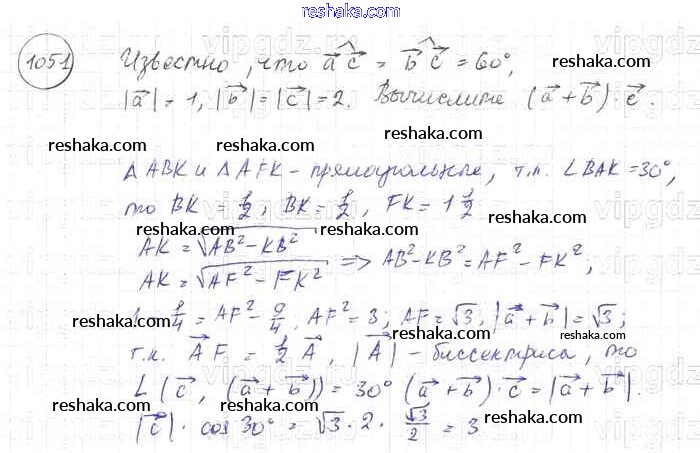 reshaka.com
1051 Известно, что a⃗ ^ c⃗ = b⃗ ^ c⃗ = 60°,
|a⃗| = 1, |b⃗| = |c⃗| = 2. Вычислите (a⃗ + b⃗) · c⃗.
reshaka.com reshaka.com reshaka.com
Δ ABK и Δ AFK – прямоугольные, т.к. ∠BAK = 30°,
то BK = 1/2; BK = 1/2, FK = 1 1/2
reshaka.com reshaka.com
AK = √AB² – KB²
AK = √AF² – FK² => AB² – KB² = AF² – FK²;
reshaka.com reshaka.com reshaka.com
1/4 = AF² – 9/4, AF² = 3; AF = √3, |a⃗ + b⃗| = √3;
reshaka.com reshaka.com reshaka.com
т.к. A⃗F = 1/2 A⃗, |A⃗| – биссектриса, то
∠(c⃗, (a⃗ + b⃗)) = 30° (a⃗ + b⃗) · c⃗ = |a⃗ + b⃗| ·
reshaka.com reshaka.com reshaka.com
|c⃗| · cos 30° = √3 · 2 · √3/2 = 3
reshaka.com